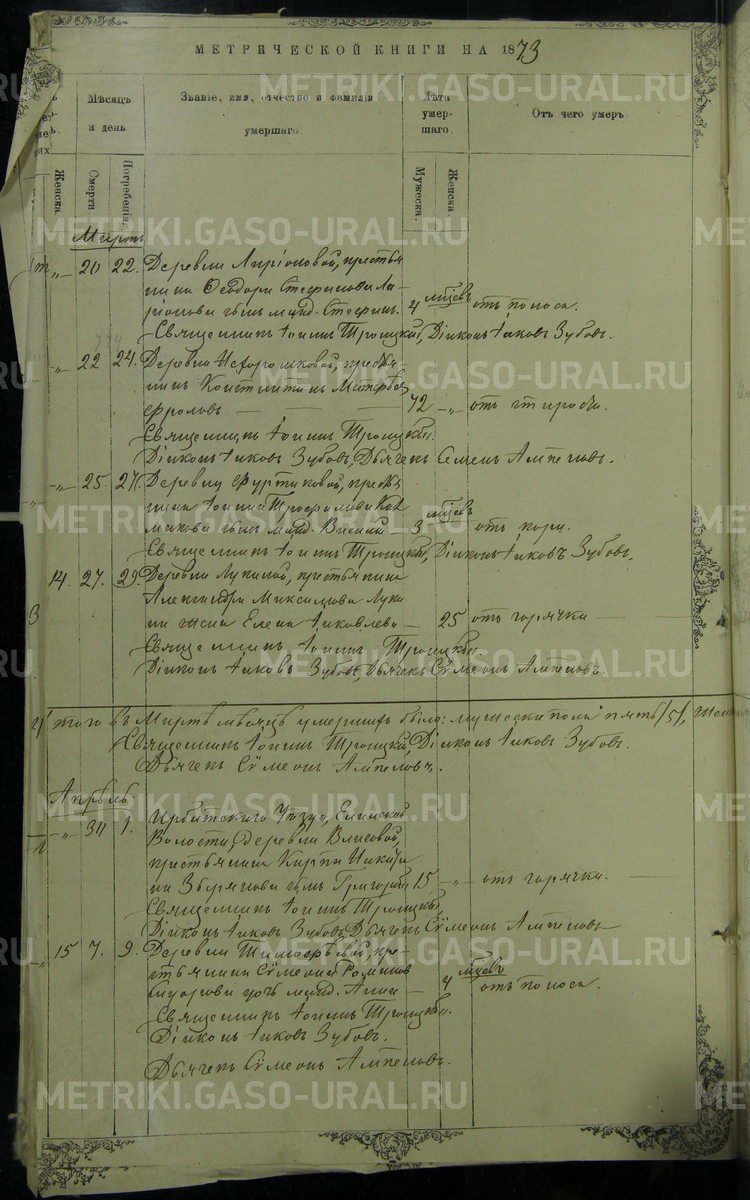 МЕТРИЧЕСКОЙ КНИГИ НА 1873
Мѣсяцъ и день
Званіе, имя, отчество и фамилія умершаго.
Лѣта умершаго.
Отъ чего умеръ.
Женска.
Смерти
Погребенія.
Мужеска.
Женска.
Мартъ
„ 20 22. Деревни Ларіоновой, крестья
нина Ѳеодора Стефанова Ла
ріонова сынъ млад. Стефанъ. 4 мѣсяцевъ отъ поноса.
Священникъ Іоаннъ Троицкій, Діаконъ Іаковъ Зубовъ.
„ 22 24. Деревни крестья
нинъ Константинъ Матвѣевъ
Фроловъ 72 „ отъ старости.
Священникъ Іоаннъ Троицкій.
Діаконъ Іаковъ Зубовъ, Дьячекъ Семенъ Ампеловъ.
„ 25. 27. Деревни Фуртиковой, кресть
нина Іоанна Трофимова
сынъ млад. 3 мѣсяцевъ отъ кори.
Священникъ Іоаннъ Троицкій, Діаконъ Іаковъ Зубовъ.
14. 27. 29. Деревни Лукиной, крестьянина
Александра Максимова Луки
на жена Елена Іаковлева 25 отъ горячки
Священникъ Іоаннъ Троицкій.
Діаконъ Іаковъ Зубовъ, Дьячекъ Сѵмеонъ Ампеловъ.
того въ Мартѣ мѣсяцѣ умершихъ было: мужеска пола пять /5/,
Священникъ Іоаннъ Троицкій, Діаконъ Іаковъ Зубовъ.
Дьячекъ Сѵмеонъ Ампеловъ.
Апрѣль.
„ 31 1. Ирбитскаго Уѣзда, Еланской
Волости, Деревни Власовой,
крестьянина Карпа Никити
на сынъ Григорій 15 „ отъ горячки.
Священникъ Іоаннъ Троицкій,
Діаконъ Іаковъ Зубовъ, Дьячекъ Сѵмеонъ Ампеловъ
15 7. 9. Деревни Тимофѣевой, кре
стьянина Сѵмеона Романова
дочь млад. Анна 4 мѣсяцевъ отъ поноса.
Священникъ Іоаннъ Троицкій.
Діаконъ Іаковъ Зубовъ.
Дьячекъ Сѵмеонъ Ампеловъ.
METRIKI.GASO-URAL.RU